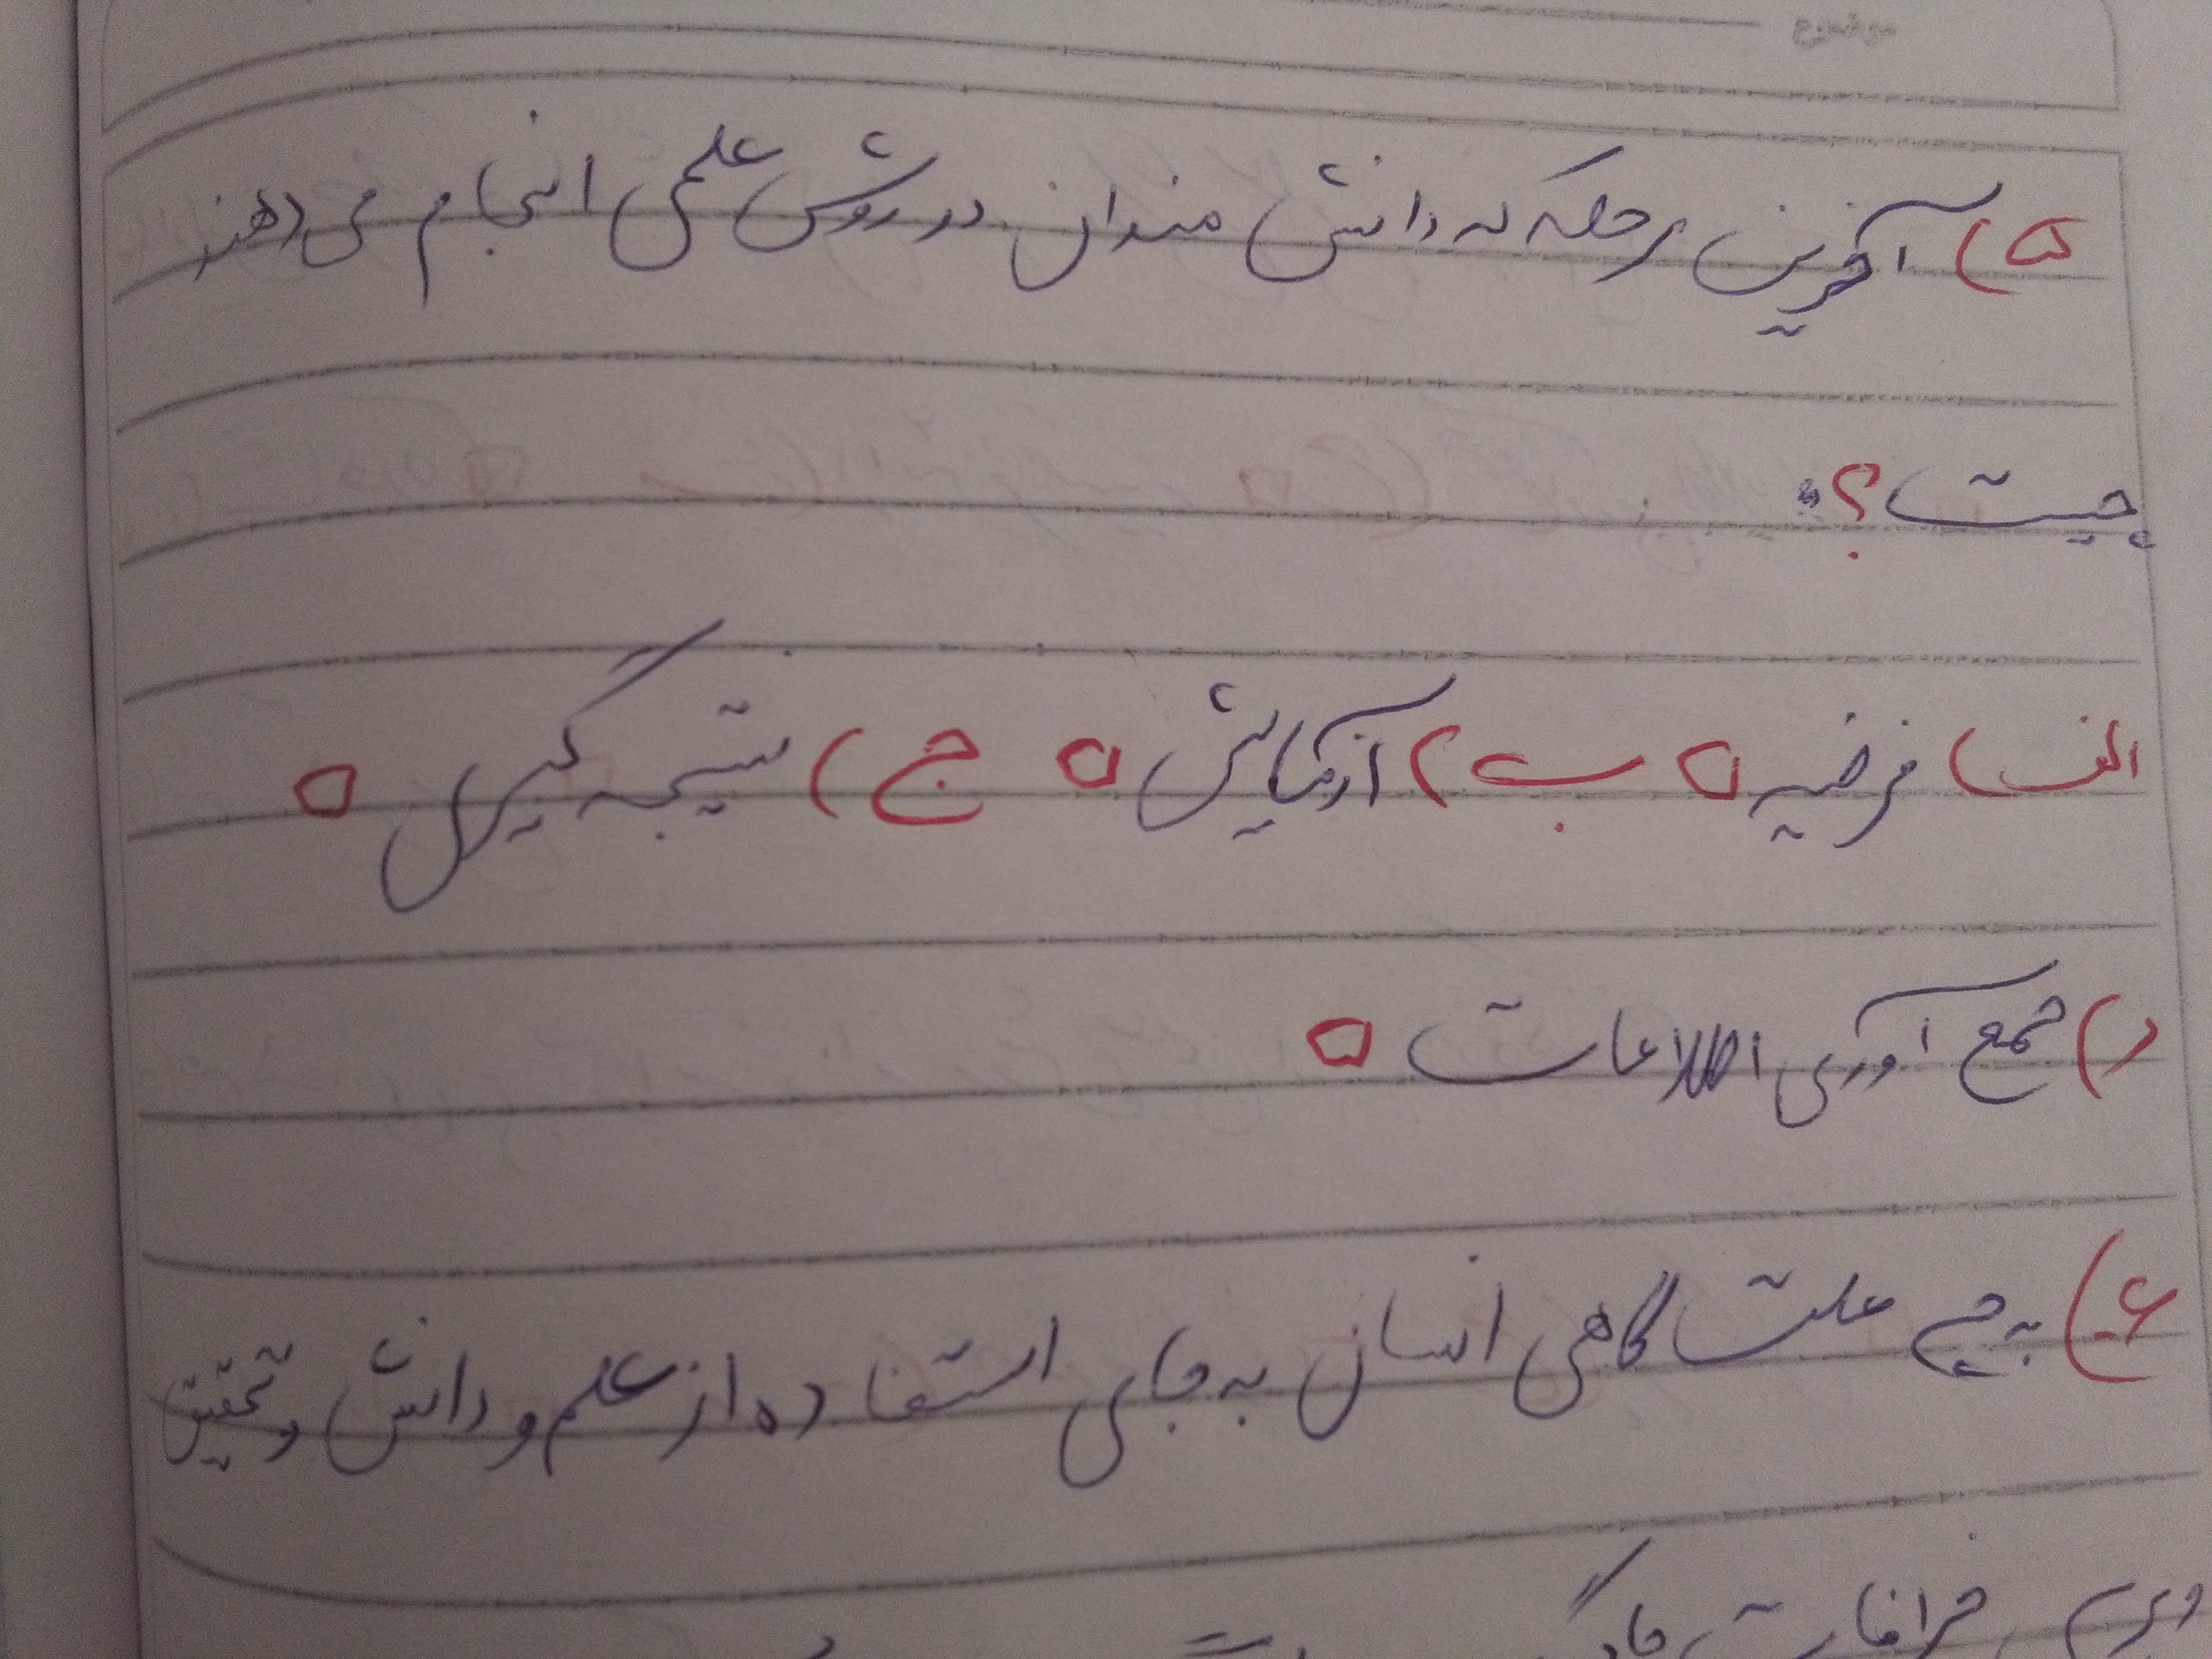 ۵) آخرین مرحله که دانش مندان در روش علمی انجام می دهند
چیست؟
الف) فرضیه □ ب) آزمایش □ ج) نتیجه گیری □
د) جمع آوری اطلاعات □
۶) به چه علت گاهی انسان به جای استفاده از علم و دانش و تحقیق
خرافات